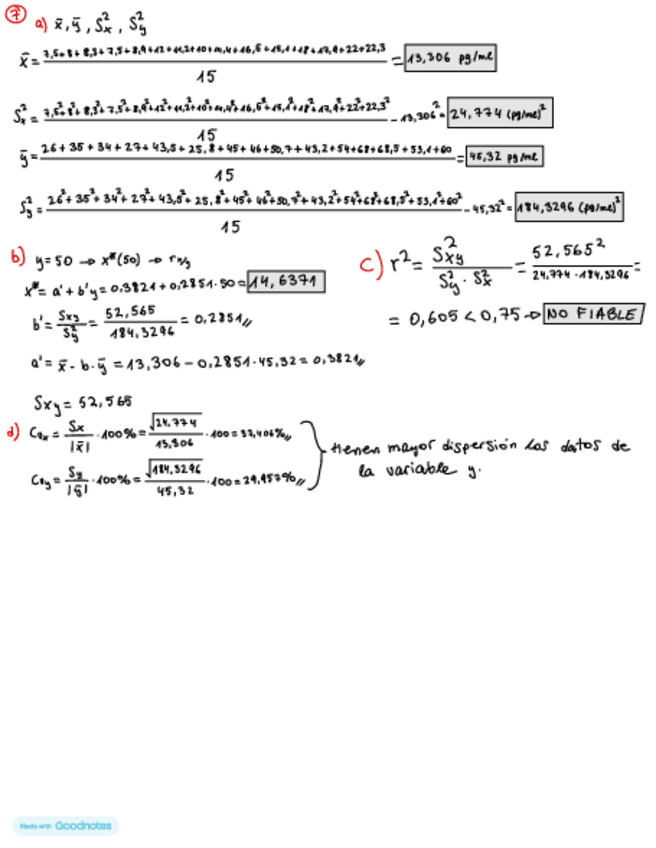 7 a) x̄, ȳ, Sx², Sy²
x̄ = (7,5+8+8,3+7,5+8,9+12+11,2+10+14,4+16,6+15,1+18+17,9+22+22,3)/15 = 13,306 pg/ml
Sx² = (7,5²+8²+8,3²+7,5²+8,9²+12²+11,2²+10²+14,4²+16,6²+15,1²+18²+17,9²+22²+22,3²)/15 - 13,306² = 24,774 (pg/ml)²
ȳ = (26+35+34+27+43,5+25,8+45+46+50,7+43,2+54+68+68,5+53,1+60)/15 = 45,32 pg/ml
Sy² = (26²+35²+34²+27²+43,5²+25,8²+45²+46²+50,7²+43,2²+54²+68²+68,5²+53,1²+60²)/15 - 45,32² = 184,3296 (pg/ml)²
b) y=50 → x*(50) → rx/y
x* = a' + b'y = 0,3821 + 0,2851·50 = 14,6371
b' = Sxy/Sy² = 52,565/184,3296 = 0,2851//
a' = x̄ - b·ȳ = 13,306 - 0,2851·45,32 = 0,3821//
Sxy = 52,565
c) r² = Sxy²/(Sy²·Sx²) = 52,565²/(24,774·184,3296) =
= 0,605 < 0,75 → NO FIABLE
d) CVx = Sx/|x̄| ·100% = √24,774/13,306 ·100 = 37,406%//
CVy = Sy/|ȳ| ·100% = √184,3296/45,32 ·100 = 29,957%//
tienen mayor dispersión los datos de
la variable y.
Made with Goodnotes